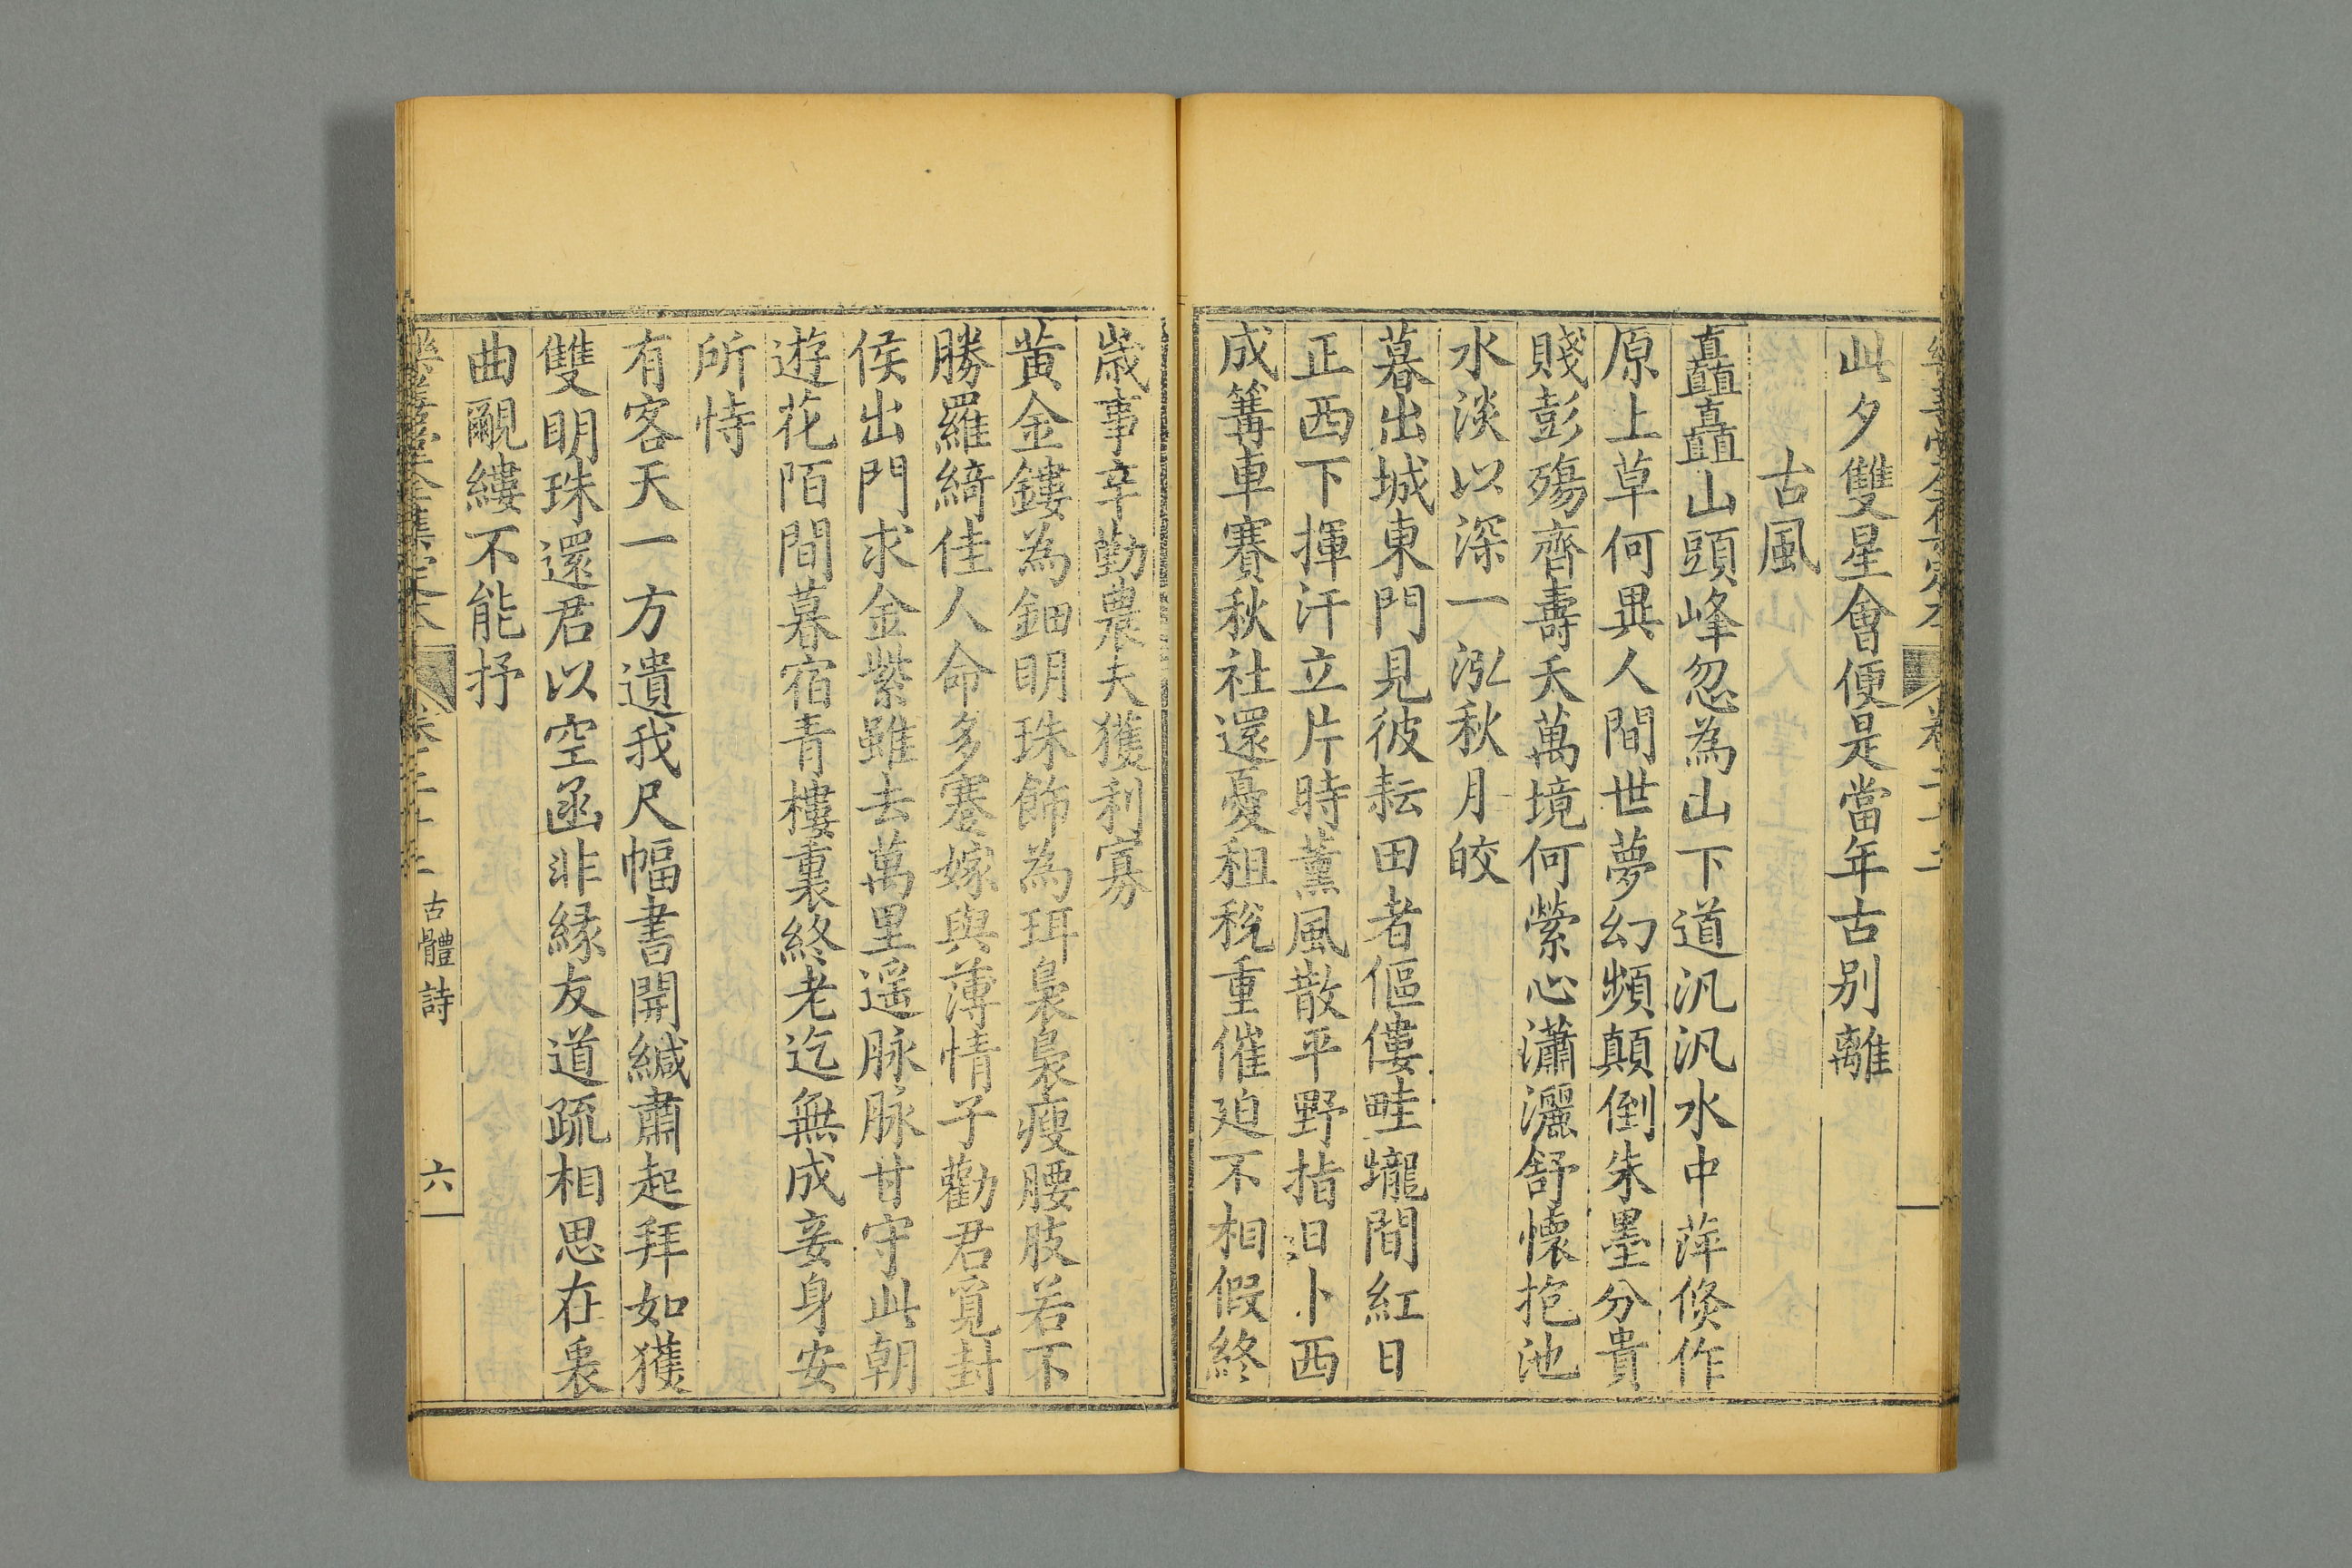 樂善堂全集定本 卷二十二
此夕雙星會便是當年古别離
古風
矗矗山頭峰忽為山下道汎汎水中萍倐作
原上草何異人間世夢幻頻顛倒朱墨分貴
賤彭殤齊壽夭萬境何縈心瀟灑舒懷抱池
水淡以深一泓秋月皎
暮出城東門見彼耘田者傴僂畦壠間紅日
正西下揮汗立片時薰風散平野指日卜西
成篝車賽秋社還憂租稅重催迫不相假終
歲事辛勤農夫獲利寡
黄金鏤為鈿明珠飾為珥裊裊瘦腰肢若不
勝羅綺佳人命多蹇嫁與薄情子勸君覓封
侯出門求金紫雖去萬里遥脉脉甘守此朝
遊花陌間暮宿青樓裏終老迄無成妾身安
所恃
有客天一方遺我尺幅書開緘肅起拜如獲
雙明珠還君以空函非縁友道疏相思在裏
曲覼縷不能抒
樂善堂全集定本 卷二十二 古體詩 六